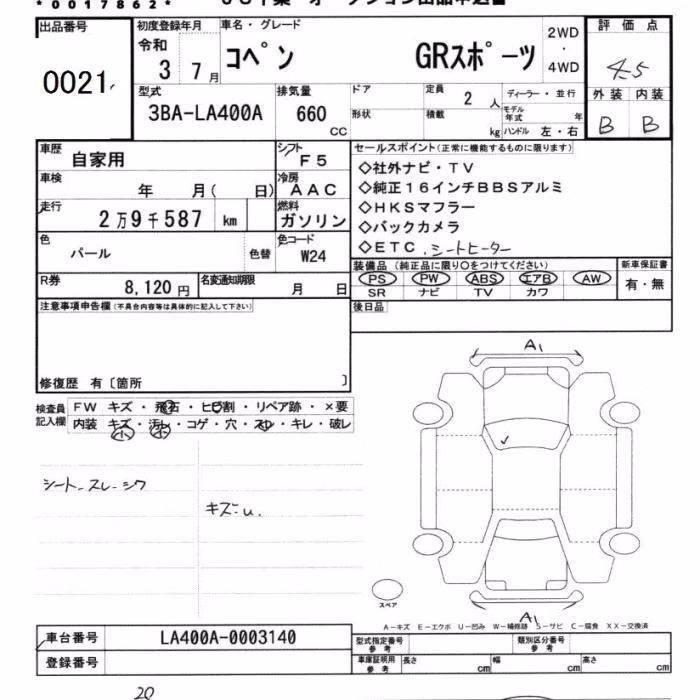 *0017862*
出品番号
0021
初度登録年月
令和
3 7月
車名・グレード
コペン GRスポーツ
2WD
・
4WD
評価点
4.5
外装 内装
B B
型式
3BA-LA400A
排気量
660
CC
ドア
形状
定員
2 人
積載
kg
ディーラー・並行
モデル年式 年
ハンドル 左・右
車歴
自家用
シフト
F5
車検
年 月( 日)
冷房
AAC
走行
2万9千587 km
燃料
ガソリン
色
パール
色替
色コード
W24
R券
8,120円
名変通知期限
月 日
セールスポイント(正常に機能するものに限ります)
◇社外ナビ・TV
◇純正16インチBBSアルミ
◇HKSマフラー
◇バックカメラ
◇ETC .シートヒーター
装備品(純正品に限り○をつけてください)
PS PW ABS エアB AW
SR ナビ TV カワ
新車保証書
有・無
後日品
注意事項申告欄(不具合内容等は具体的に記入して下さい)
修復歴 有〔箇所 〕
検査員
記入欄
FW キズ・飛石・ヒビ割・リペア跡・×要
内装 キズ・汚レ・コゲ・穴・スレ・キレ・破レ
小 小
シート-スレ-シワ
キズ-u.
A1
スペア
A1
A-キズ E-エクボ U-凹み W-補修跡 S-サビ C-腐食 XX-交換済
車台番号
LA400A-0003140
登録番号
型式指定番号
参考
類別区分番号
参考
車庫証明用
参考
長さ cm
幅 cm
高さ cm
20